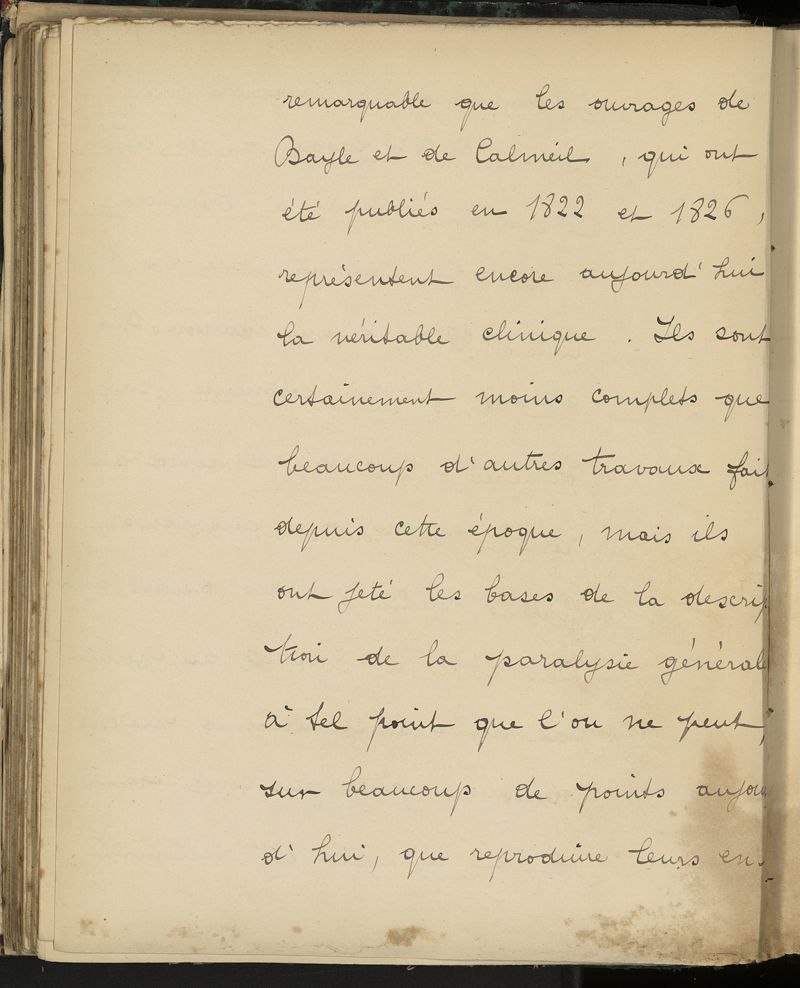 remarquable que les ouvrages de
Bayle et de Calmeil, qui ont
été publiés en 1822 et 1826,
représentent encore aujourd'hui
la véritable clinique. Ils sont
certainement moins complets que
beaucoup d'autres travaux fait
depuis cette époque, mais ils
ont jeté les bases de la descrip
tion de la paralysie générale
à tel point que l'on ne peut,
sur beaucoup de points aujou
d'hui, que reproduire leurs en